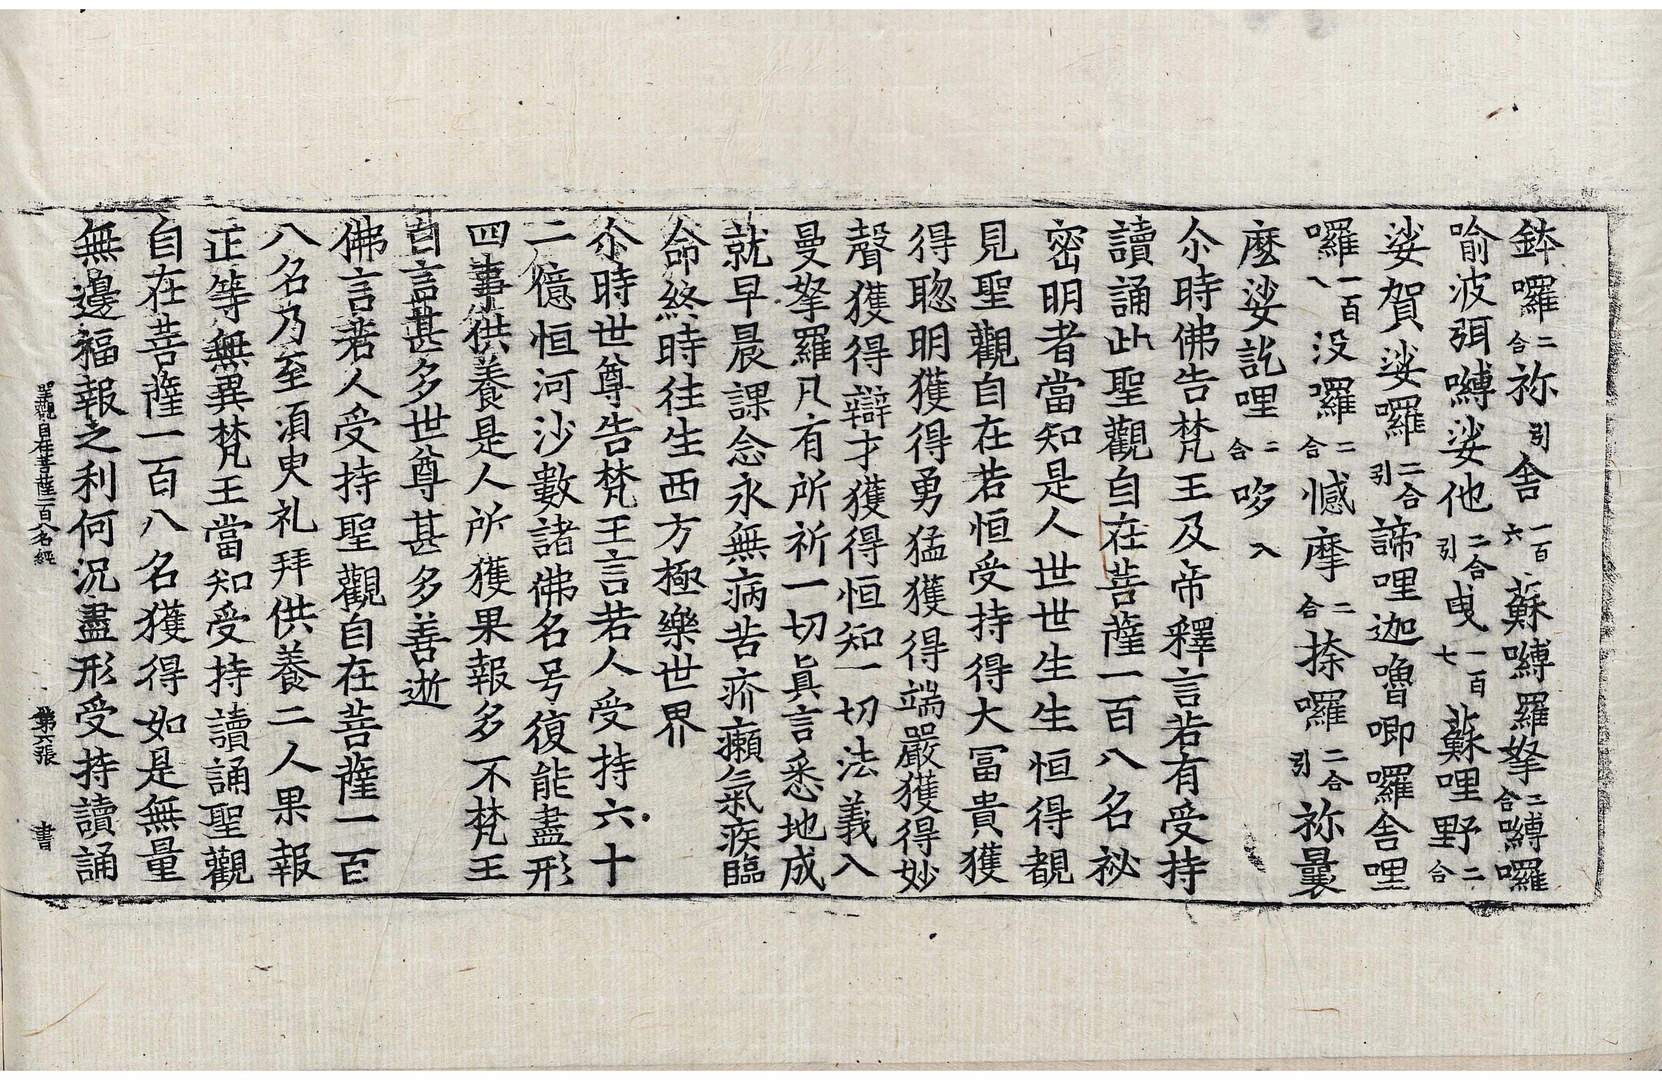 鉢囉二合祢引舍一百六蘇嚩羅拏二合嚩囉
喻波弭嚩娑他二合引曳一百七蘇哩野二合
娑賀娑囉二合引諦哩迦嚕唧囉舍哩
囉一百八没囉二合憾摩二合捺囉二合引祢曩
麼娑訖哩二合哆入
尒時佛告梵王及帝釋言若有受持
讀誦此聖觀自在菩薩一百八名祕
密明者當知是人世世生生恒得覩
見聖觀自在若恒受持得大冨貴獲
得聦明獲得勇猛獲得端嚴獲得妙
聲獲得辯才獲得恒知一切法義入
曼拏羅凡有所祈一切眞言悉地成
就早晨課念永無病苦疥癩氣疾臨
命終時往生西方極樂世界
尒時世尊告梵王言若人受持六十
二億恒河沙數諸佛名号復能盡形
四事供養是人所獲果報多不梵王
白言甚多世尊甚多善逝
佛言若人受持聖觀自在菩薩一百
八名乃至湏臾礼拜供養二人果報
正等無異梵王當知受持讀誦聖觀
自在菩薩一百八名獲得如是無量
無邊福報之利何況盡形受持讀誦
聖觀自在菩薩一百八名經 第六張 書